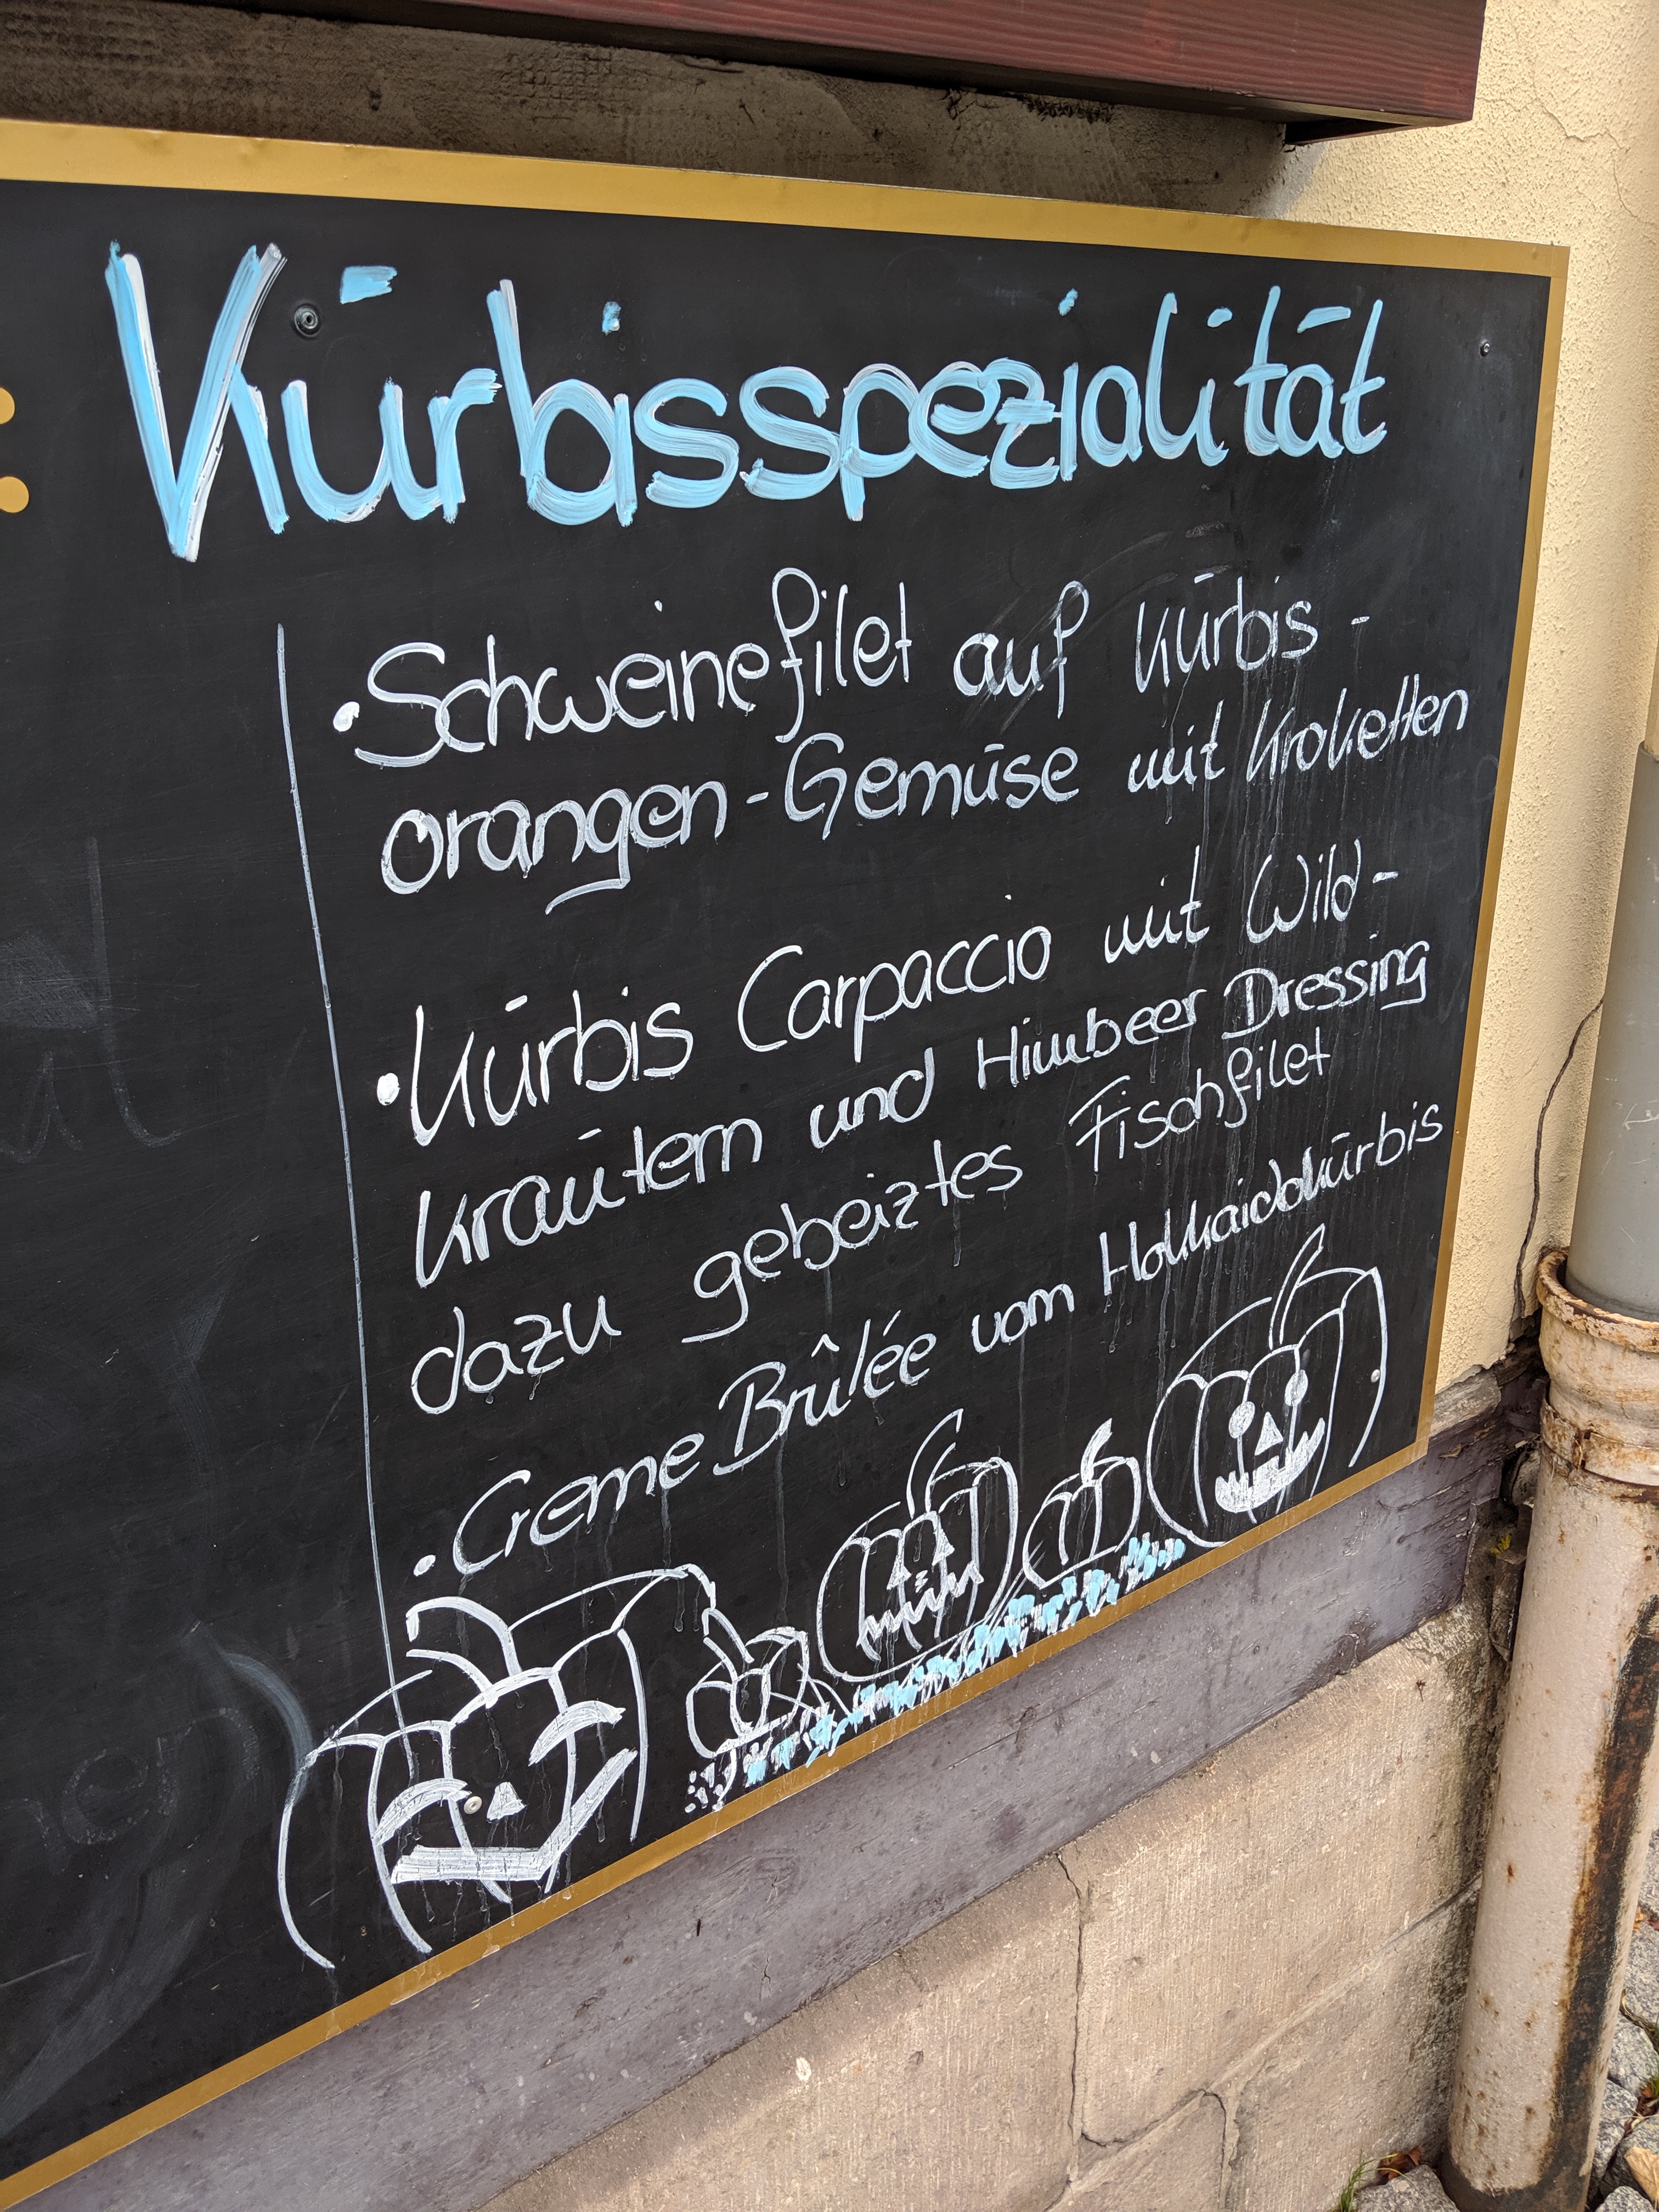 Kürbisspezialität
• Schweinefilet auf Kürbis-
orangen-Gemüse mit Kroketten
• Kürbis Carpaccio mit Wild-
kräutern und Himbeer Dressing
dazu gebeiztes Fischfilet
• Creme Brûlée vom Hokkaidokürbis